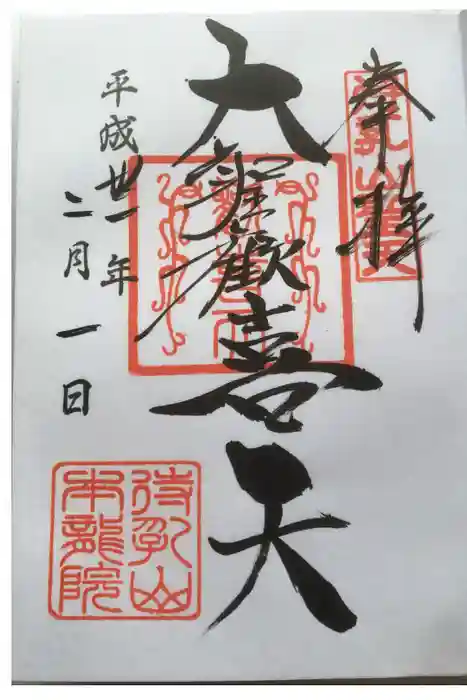 奉拝
大聖歡喜天
平成卅一年
二月一日
待乳山
本龍院